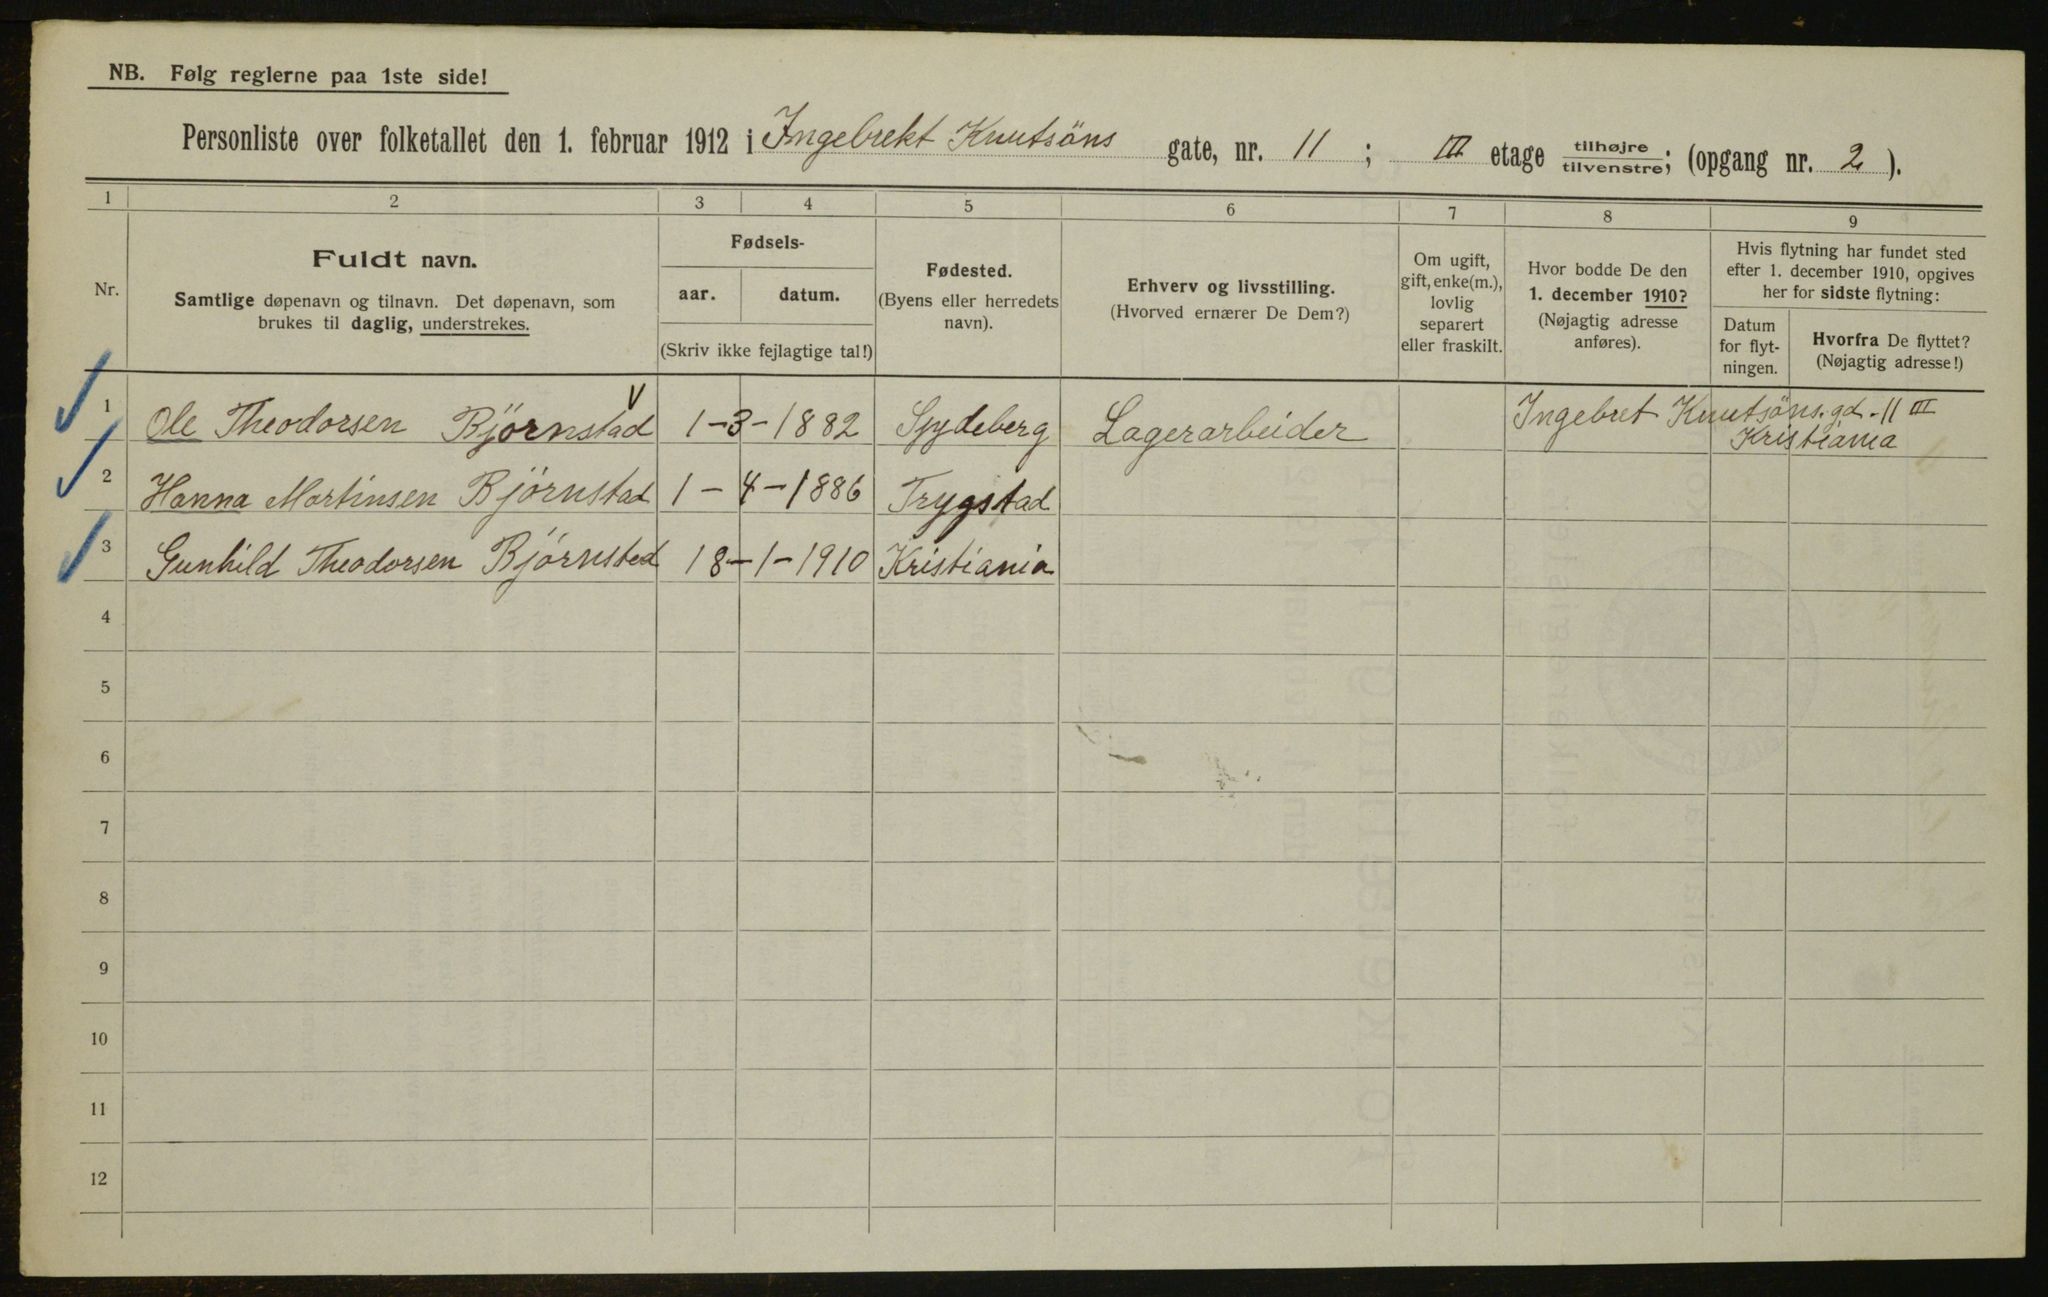 NB. Følg reglerne paa 1ste side!
Personliste over folketallet den 1. februar 1912 i Ingebrekt Knutsöns gate, nr. 11 ; III etage tilhøjre / tilvenstre; (opgang nr. 2 ).
1 2 3 4 5 6 7 8 9
Nr.
Fuldt navn.
Samtlige døpenavn og tilnavn. Det døpenavn, som
brukes til daglig, understrekes.
Fødsels-
aar. datum.
(Skriv ikke fejlagtige tal!)
Fødested.
(Byens eller herredets
navn).
Erhverv og livsstilling.
(Hvorved ernærer De Dem?)
Om ugift,
gift, enke(m.),
lovlig
separert
eller fraskilt.
Hvor bodde De den
1. december 1910?
(Nøjagtig adresse
anføres).
Hvis flytning har fundet sted
efter 1. december 1910, opgives
her for sidste flytning:
Datum
for flyt-
ningen.
Hvorfra De flyttet?
(Nøjagtig adresse!)
1 Ole Theodorsen Björnstad 1-3-1882 Spydeberg Lagerarbeider Ingebret Knutsöns.gd.-11 III
Kristiania
2 Hanna Martinsen Björnstad 1-4-1886 Trygstad
3 Gunhild Theodorsen Björnstad 18-1-1910 Kristiania
4
5
6
7
8
9
10
11
12